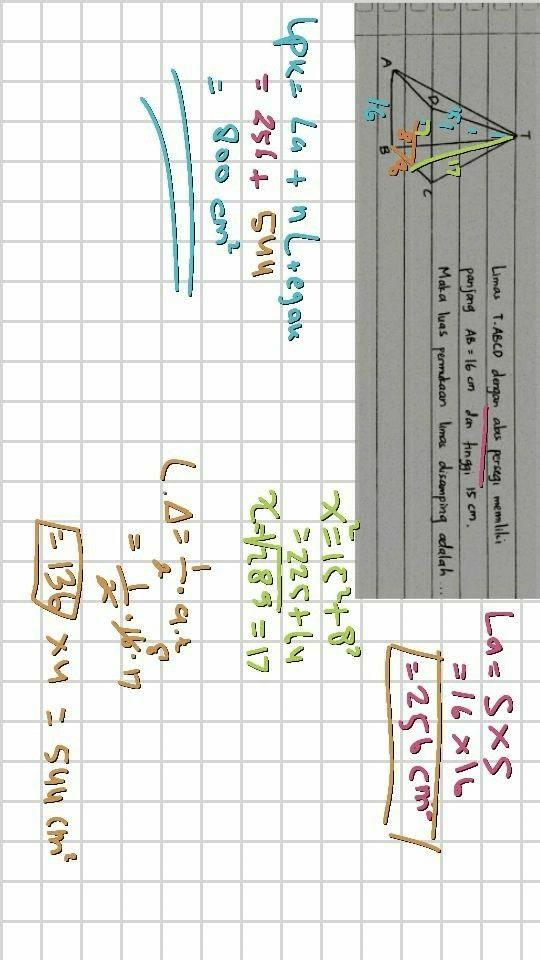 Limas T.ABCD dengan alas persegi memiliki
panjang AB = 16 cm dan tinggi 15 cm.
Maka luas permukaan limas disamping adalah ...
T
A
D
B
C
15
17
8
16
La = S x S
= 16 x 16
= 256 cm²
x² = 15² + 8²
= 225 + 64
x = √289 = 17
L.Δ = 1/2 . a . t
= 1/2 . 16 . 17
8
= 136 x 4 = 544 cm²
Lpk = La + n L tegak
= 256 + 544
= 800 cm²